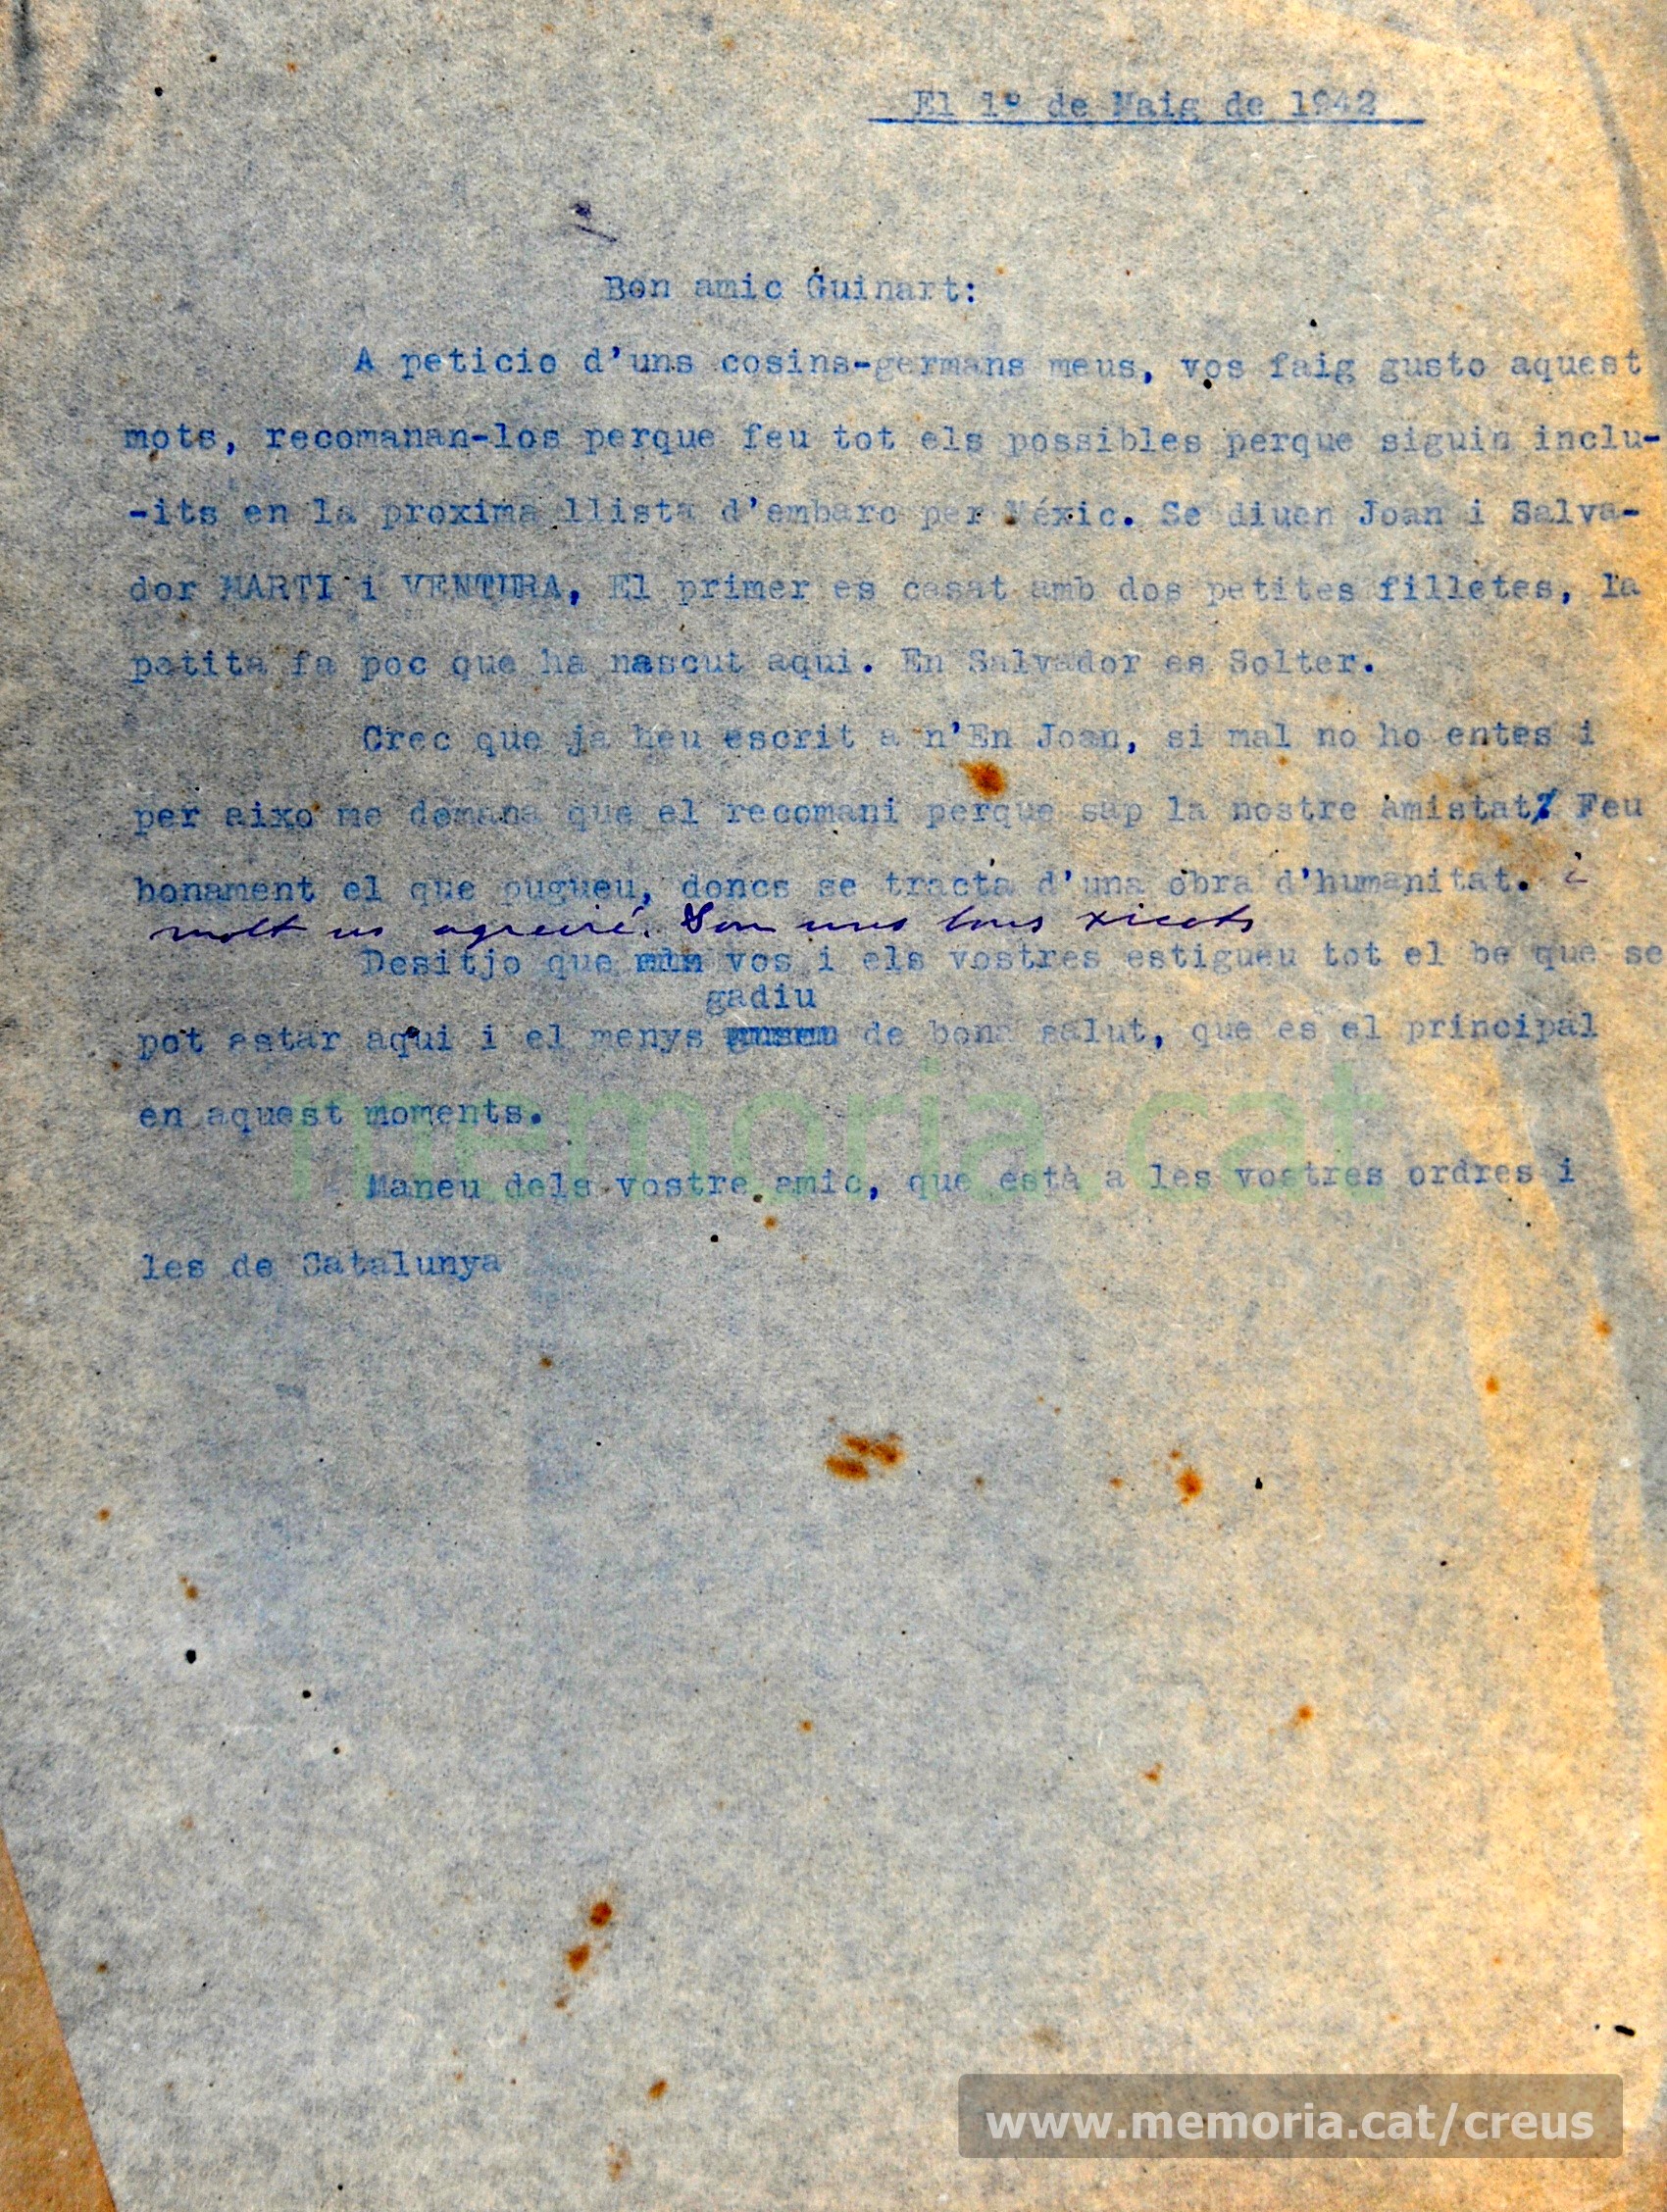 El 1º de Maig de 1942
Bon amic Guinart:
A peticio d'uns cosins-germans meus, vos faig gusto aquest
mots, recomanan-los perque feu tot els possibles perque siguin inclu-
-its en la proxima llista d'embarc per Méxic. Se diuen Joan i Salva-
dor MARTI i VENTURA, El primer es casat amb dos petites filletes, la
petita fa poc que ha nascut aqui. En Salvador es Solter.
Crec que ja heu escrit a n'En Joan, si mal no ho entes i
per aixo me demana que el recomani perque sap la nostre amistat. Feu
bonament el que pugueu, doncs se tracta d'una obra d'humanitat. i
molt us agrairé. Son uns bons xicots
Desitjo que vos i els vostres estigueu tot el be que se
gadiu
pot estar aqui i el menys de bona salut, que es el principal
en aquest moments.
Maneu dels vostre amic, que està a les vostres ordres i
les de Catalunya
memoria.cat
www.memoria.cat/creus